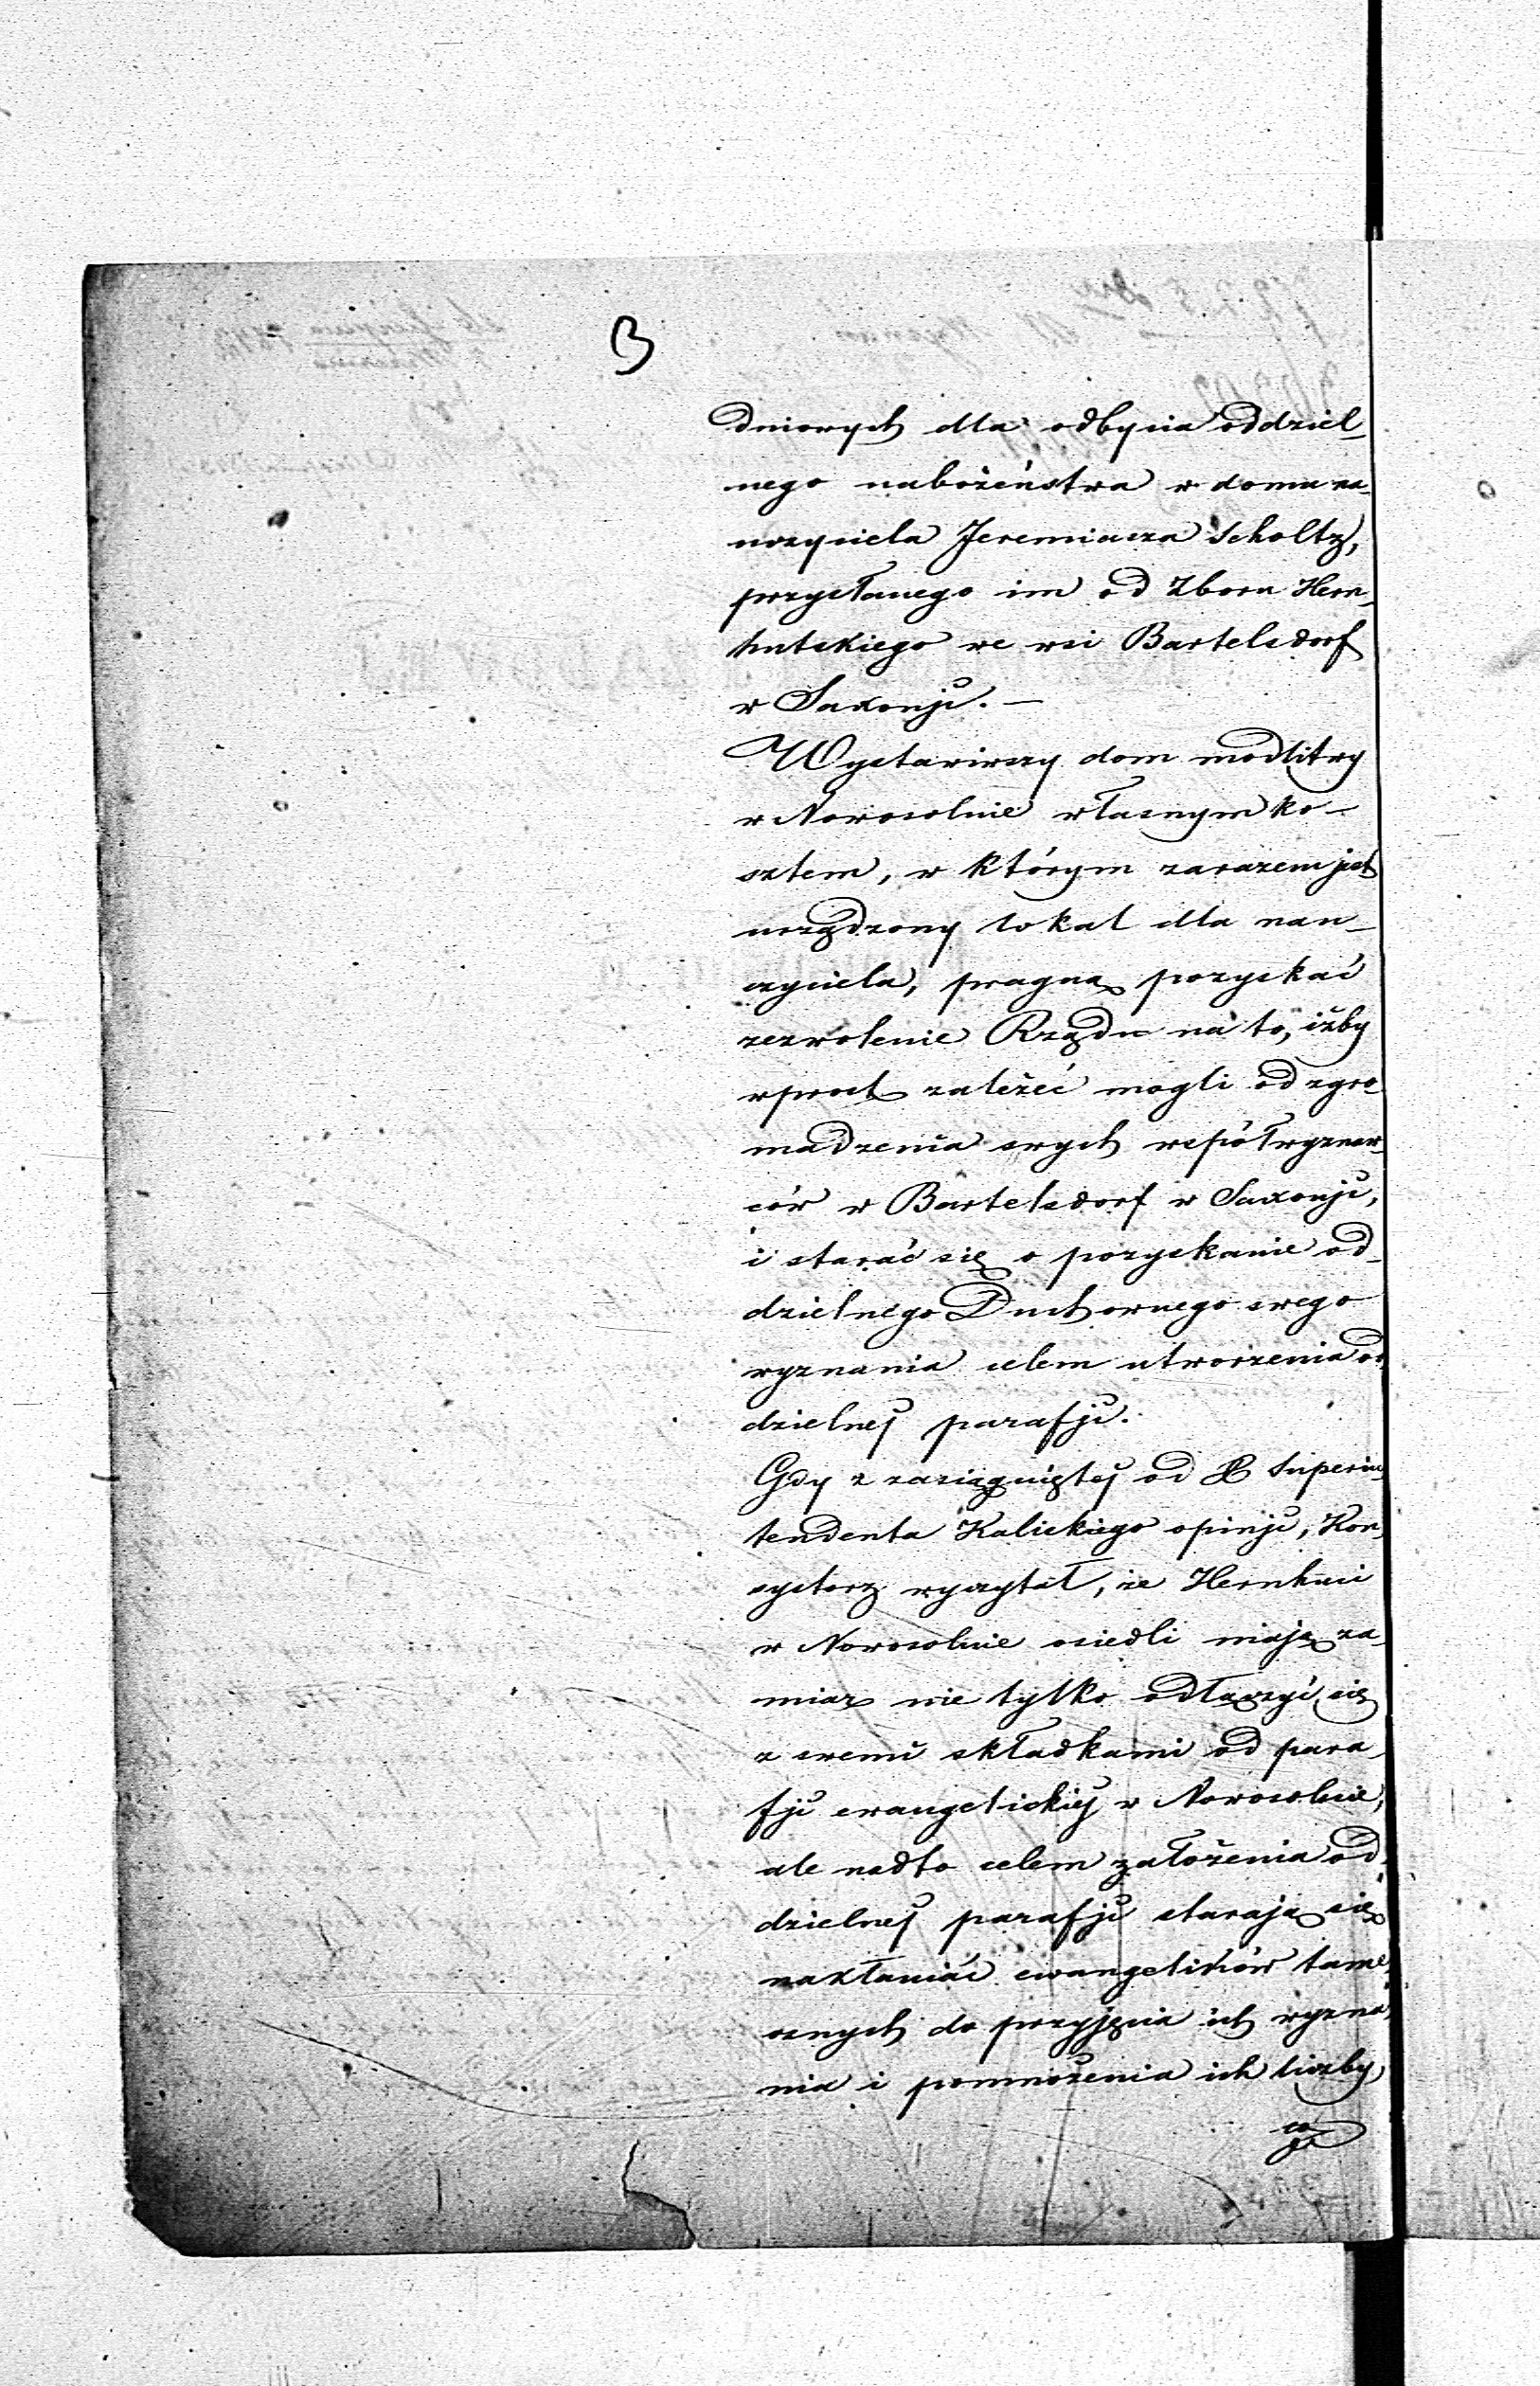 3
dniowych dla odbycia oddziel-
nego nabożeństwa w domu na-
uczyciela Jeremiasza Scholtz,
przysłanego im od Zboru Hern-
hutskiego we wsi Bartelsdorf
w Saxonji. —
Wystawiwszy dom modlitwy
w Nowosolnie własnym ko-
sztem, w którym zarazem jest
urządzony lokal dla nau-
czyciela, pragną pozyskać
zezwolenie Rządu na to, iżby
wprost zależeć mogli od zgro-
madzenia swych współwyznaw-
ców w Bartelsdorf w Saxonji,
i starać się o pozyskanie od-
dzielnego Duchownego swego
wyznania celem utworzenia od
dzielnej parafji.
Gdy z zasiągniętej od Superin-
tendenta Kaliskiego opinji, Kon-
systorz wyczytał, że Hernhuci
w Nowosolnie osiedli mają za-
miar nie tylko odłączyć się
z swemi składkami od para-
fji ewangelickiej w Nowosolnie,
ale nadto celem założenia od-
dzielnej parafji starają się
nakłaniać ewangelików tame-
cznych do przyjęcia ich wyzna-
nia i pomnożenia ich liczby,